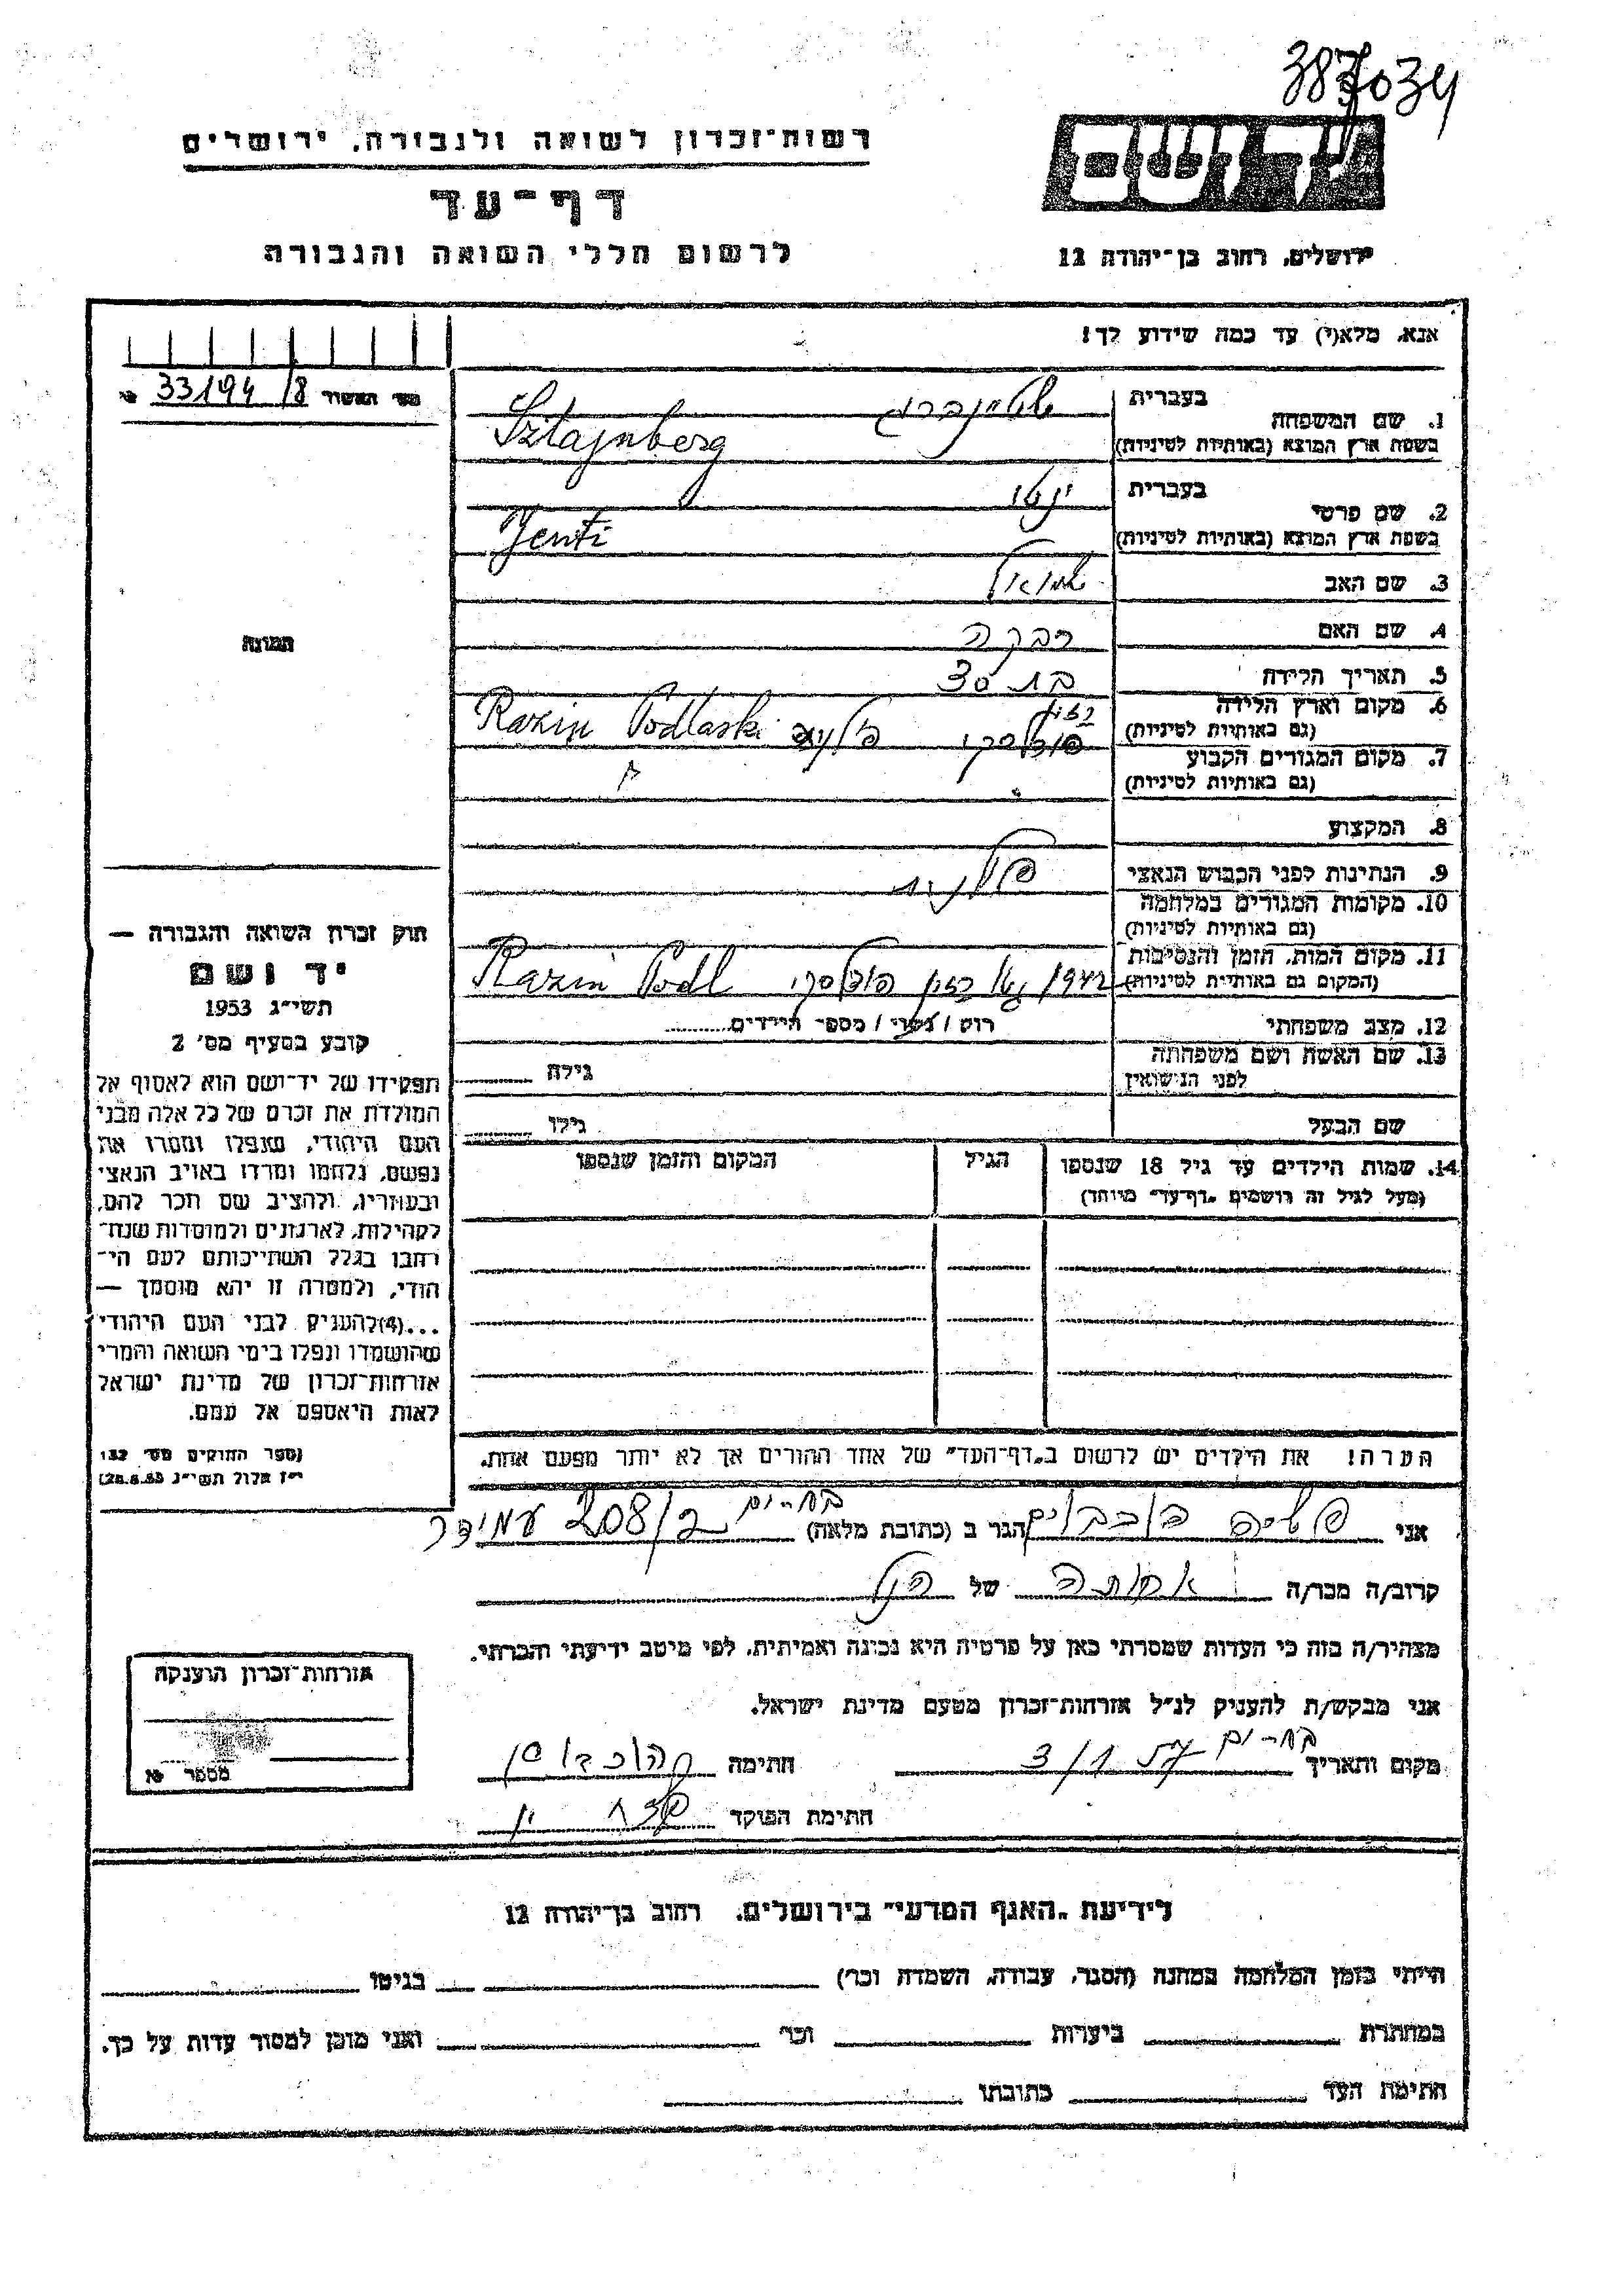 387034
רשות־זכרון לשואה ולגבורה, ירושלים
דף־עד
לרשום חללי השואה והגבורה
ירושלים, רחוב בן־יהודה 12
אנא, מלא(י) עד כמה שידוע לך!
מס׳ האשור 33194/8 №
1. שם המשפחה בעברית שטיינברג
בשפת ארץ המוצא (באותיות לטיניות) Sztajnberg
2. שם פרטי בעברית ינטי
בשפת ארץ המוצא (באותיות לטיניות) Jenti
3. שם האב שמואל
4. שם האם רבקה
5. תאריך הלידה בת 30
6. מקום וארץ הלידה
(גם באותיות לטיניות) רזין פודלסקי פולניה Razin Podlaski
7. מקום המגורים הקבוע
(גם באותיות לטיניות)
8. המקצוע
9. הנתינות לפני הכבוש הנאצי פולנית
10. מקומות המגורים במלחמה
(גם באותיות לטיניות)
11. מקום המות, הזמן והנסיבות
(המקום גם באותיות לטיניות) 1942 גטו רזין פודלסקי Razin Podl
12. מצב משפחתי רוק / נשוי / מספר הילדים
13. שם האשה ושם משפחתה
לפני הנישואין גילה
שם הבעל גילו
14. שמות הילדים עד גיל 18 שנספו הגיל המקום והזמן שנספו
(מעל לגיל זה רושמים „דף־עד״ מיוחד)
הערה! את הילדים יש לרשום ב„דף־העד״ של אחד ההורים אך לא יותר מפעם אחת.
תמונה
חוק זכרון השואה והגבורה —
יד ושם
תשי״ג 1953
קובע בסעיף מס׳ 2
תפקידו של יד־ושם הוא לאסוף אל
המולדת את זכרם של כל אלה מבני
העם היהודי, שנפלו ומסרו את
נפשם, נלחמו ומרדו באויב הנאצי
ובעוזריו, ולהציב שם וזכר להם,
לקהילות, לארגונים ולמוסדות שנח־
רחבו בגלל השתייכותם לעם הי־
הודי, ולמטרה זו יהא מוסמך —
...(4) להעניק לבני העם היהודי
שהושמדו ונפלו בימי השואה והמרי
אזרחות־זכרון של מדינת ישראל
לאות היאספם אל עמם.
(ספר החוקים מס׳ 132
י״ז אלול תשי״ג 28.8.53)
אני הגר ב (כתובת מלאה) בת-ים 208/2 עמידר
קרוב/ה מכר/ה אחותה של הנ״ל
מצהיר/ה בזה כי העדות שמסרתי כאן על פרטיה היא נכונה ואמיתית, לפי מיטב ידיעתי והכרתי.
אני מבקש/ת להעניק לנ״ל אזרחות־זכרון מטעם מדינת ישראל.
מקום ותאריך בת-ים 3/1 חתימה
חתימת הפוקד
אזרחות־זכרון הוענקה
מספר №
לידיעת „האגף המדעי״ בירושלים, רחוב בן־יהודה 12
הייתי בזמן המלחמה במחנה (הסגר, עבודה, השמדה וכר׳) בגיטו
במחתרת ביערות וכר׳ ואני מוכן למסור עדות על כך.
חתימת העד כתובתו